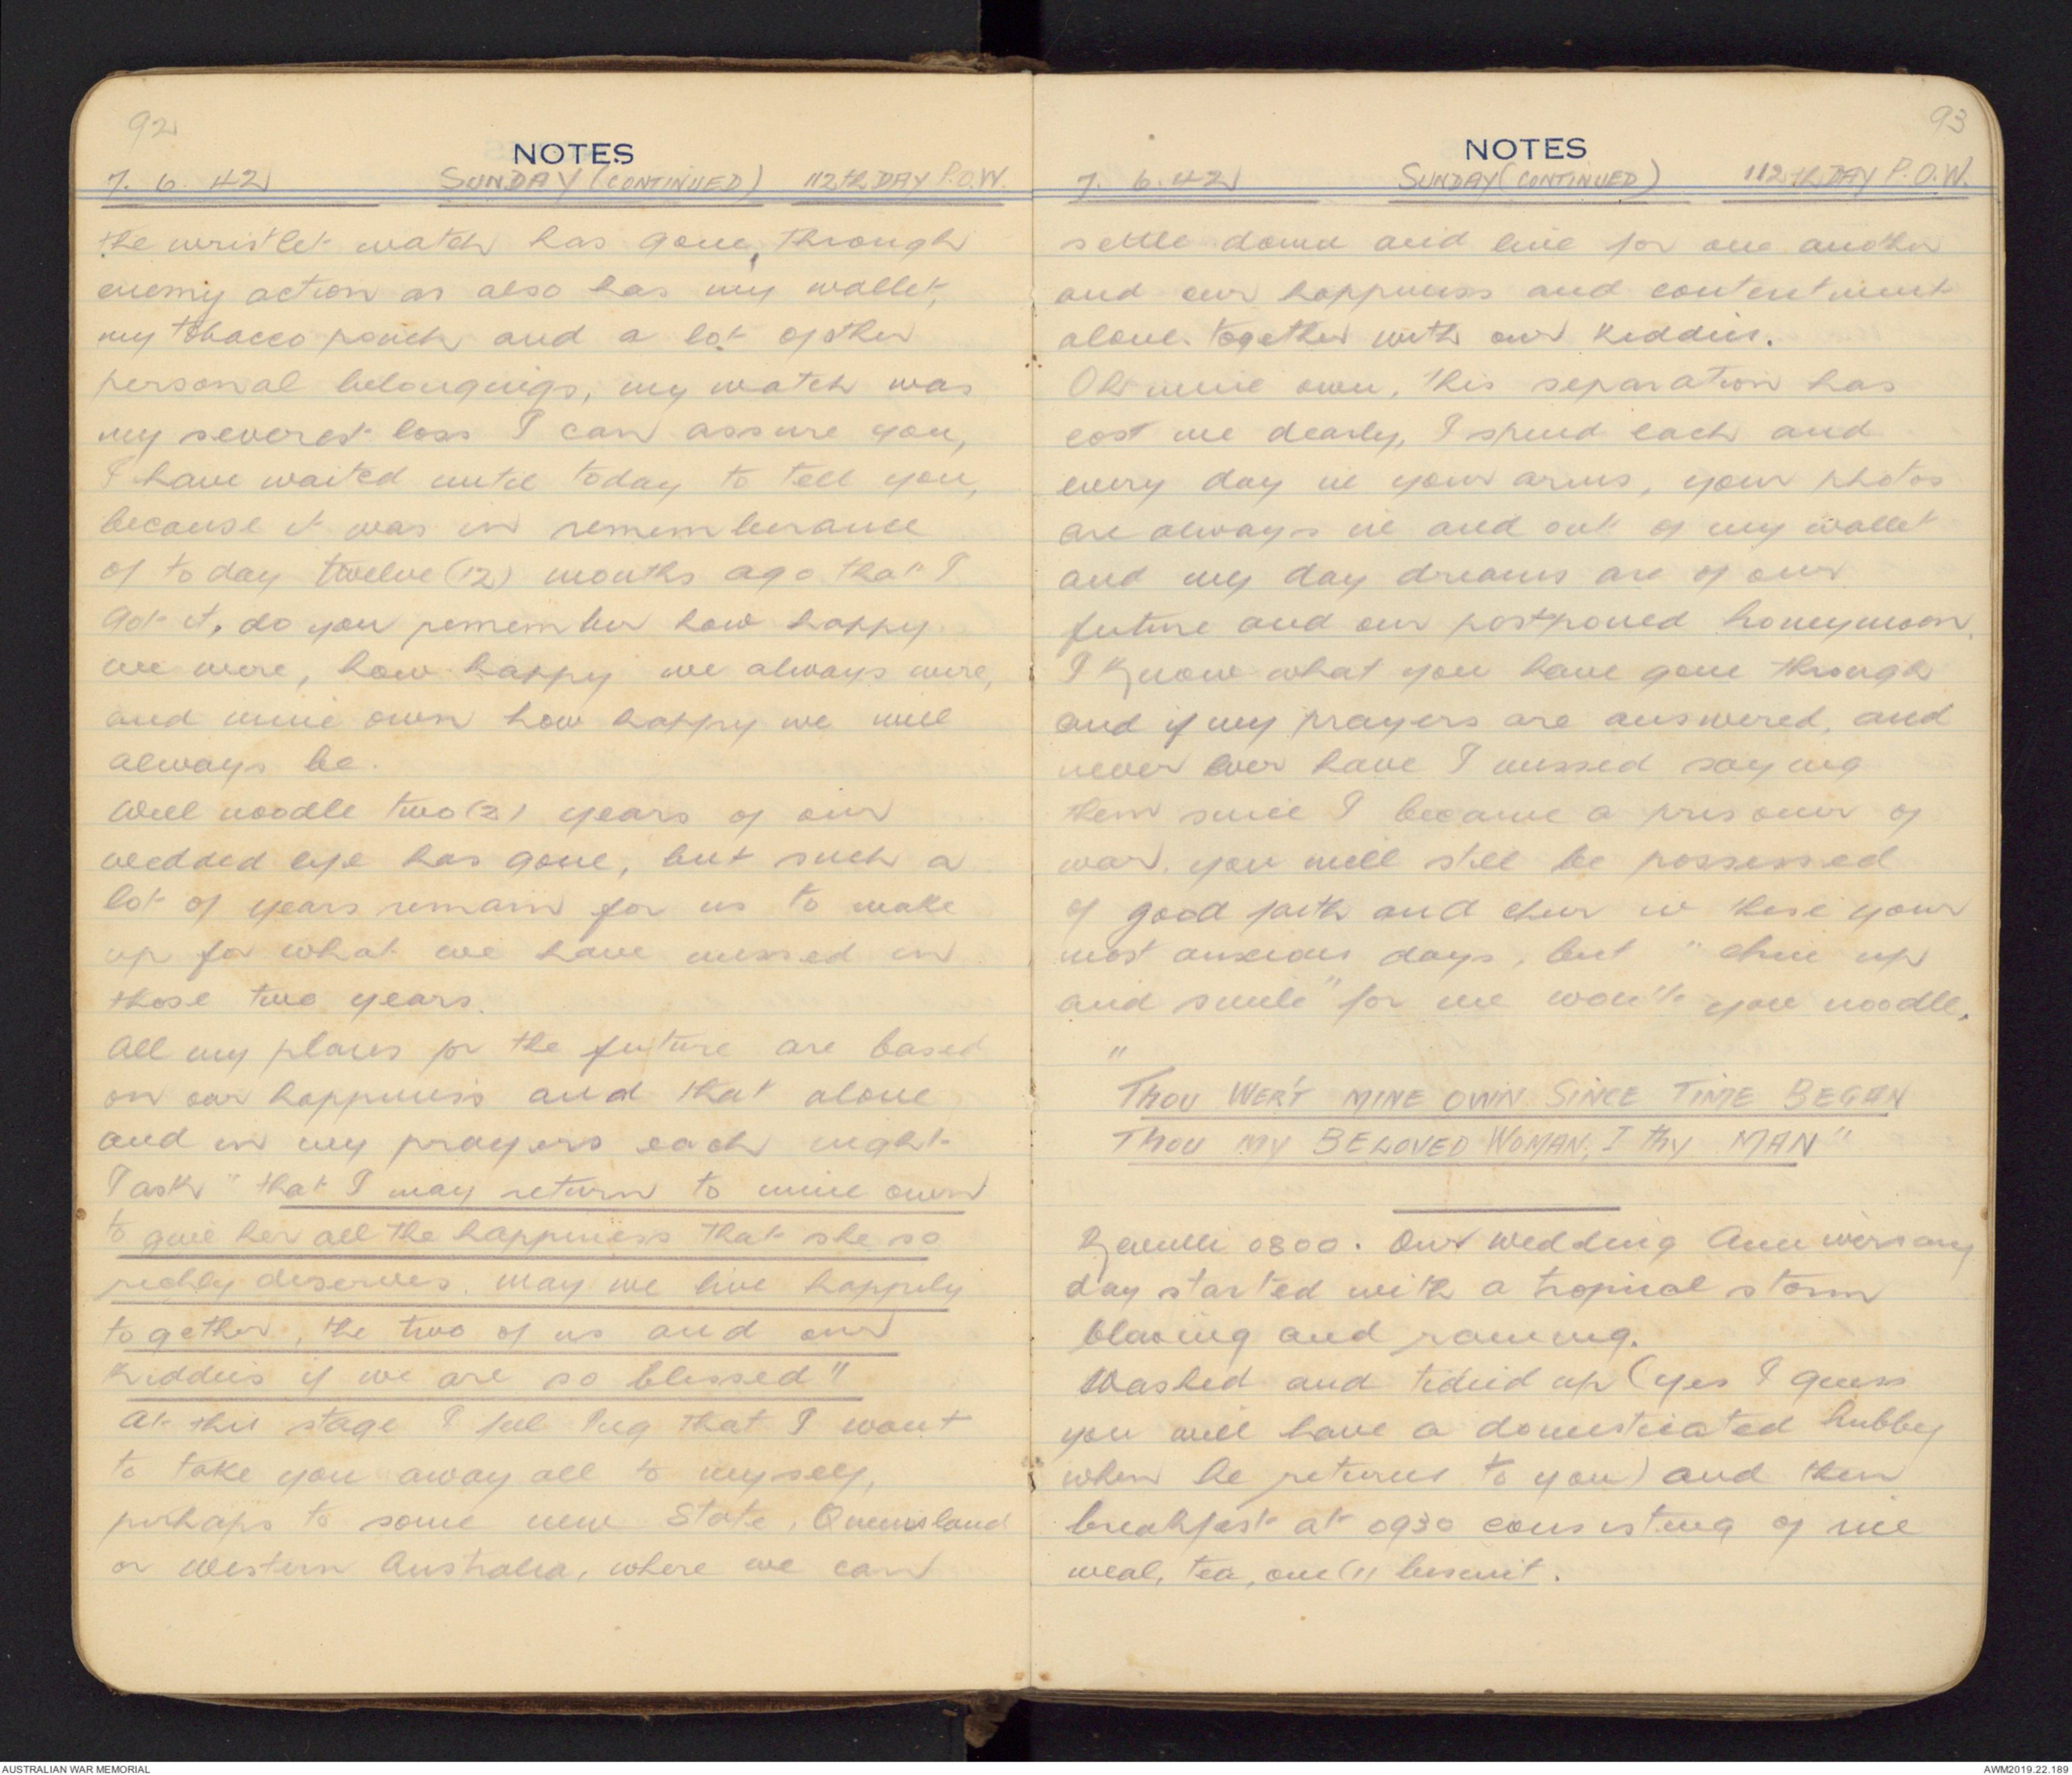 92
NOTES
7. 6. 42 SUNDAY (CONTINUED) 112th DAY P.O.W.
the wristlet watch has gone, through
enemy action as also has my wallet,
my tobacco pouch and a lot of other
personal belongings, my watch was
my severest loss I can assure you,
I have waited until today to tell you,
because it was in rememberance
of today twelve (12) months ago that I
got it, do you remember how happy
we were, how happy we always were,
and mine own how happy we will
always be.
Well noodle two (2) years of our
wedded life has gone, but such a
lot of years remain for us to make
up for what we have missed in
those two years.
All my plans for the future are based
on our happiness and that alone
and in my prayers each night
I ask "that I may return to mine own
to give her all the happiness that she so
richly deserves. may we live happily
together, the two of us and our
kiddies if we are so blessed"
At this stage I feel that I want
to take you away all to myself,
perhaps to some new State, Queensland
or Western Australia, where we can
93
NOTES
7. 6. 42 SUNDAY (CONTINUED) 112th DAY P.O.W.
settle down and live for one another
and our happiness and contentment
alone together with our kiddies.
Oh mine own, this separation has
cost me dearly, I spend each and
every day in your arms, your photos
are always in and out of my wallet
and my day dreams are of our
future and our postponed honeymoon.
I know what you have gone through
and if my prayers are answered, and
never ever have I missed saying
them since I became a prisoner of
war, you will still be possessed
of good faith and cheer in these your
most anxious days, but "cheer up
and smile" for me won't you noodle.
"
THOU WER'T MINE OWN SINCE TIME BEGAN
THOU MY BELOVED WOMAN, I thy MAN"
Reveille 0800. Our Wedding Anniversary
day started with a tropical storm
blowing and raining.
Washed and tidied up (yes I guess
you will have a domesticated hubby
when he returns to you) and then
breakfast at 0930 consisting of rice
meal, tea, one (1) biscuit.
AUSTRALIAN WAR MEMORIAL
AWM2019.22.189